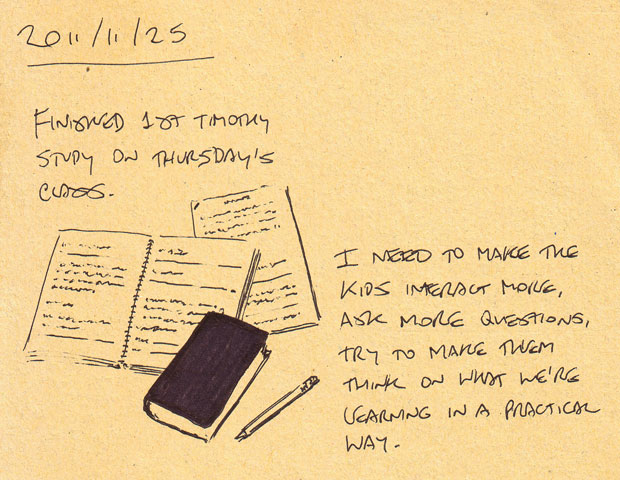 2011/11/25
FINISHED 1ST TIMOTHY
STUDY ON THURSDAY'S
CLASS.
I NEED TO MAKE THE
KIDS INTERACT MORE,
ASK MORE QUESTIONS,
TRY TO MAKE THEM
THINK ON WHAT WE'RE
LEARNING IN A PRACTICAL
WAY.